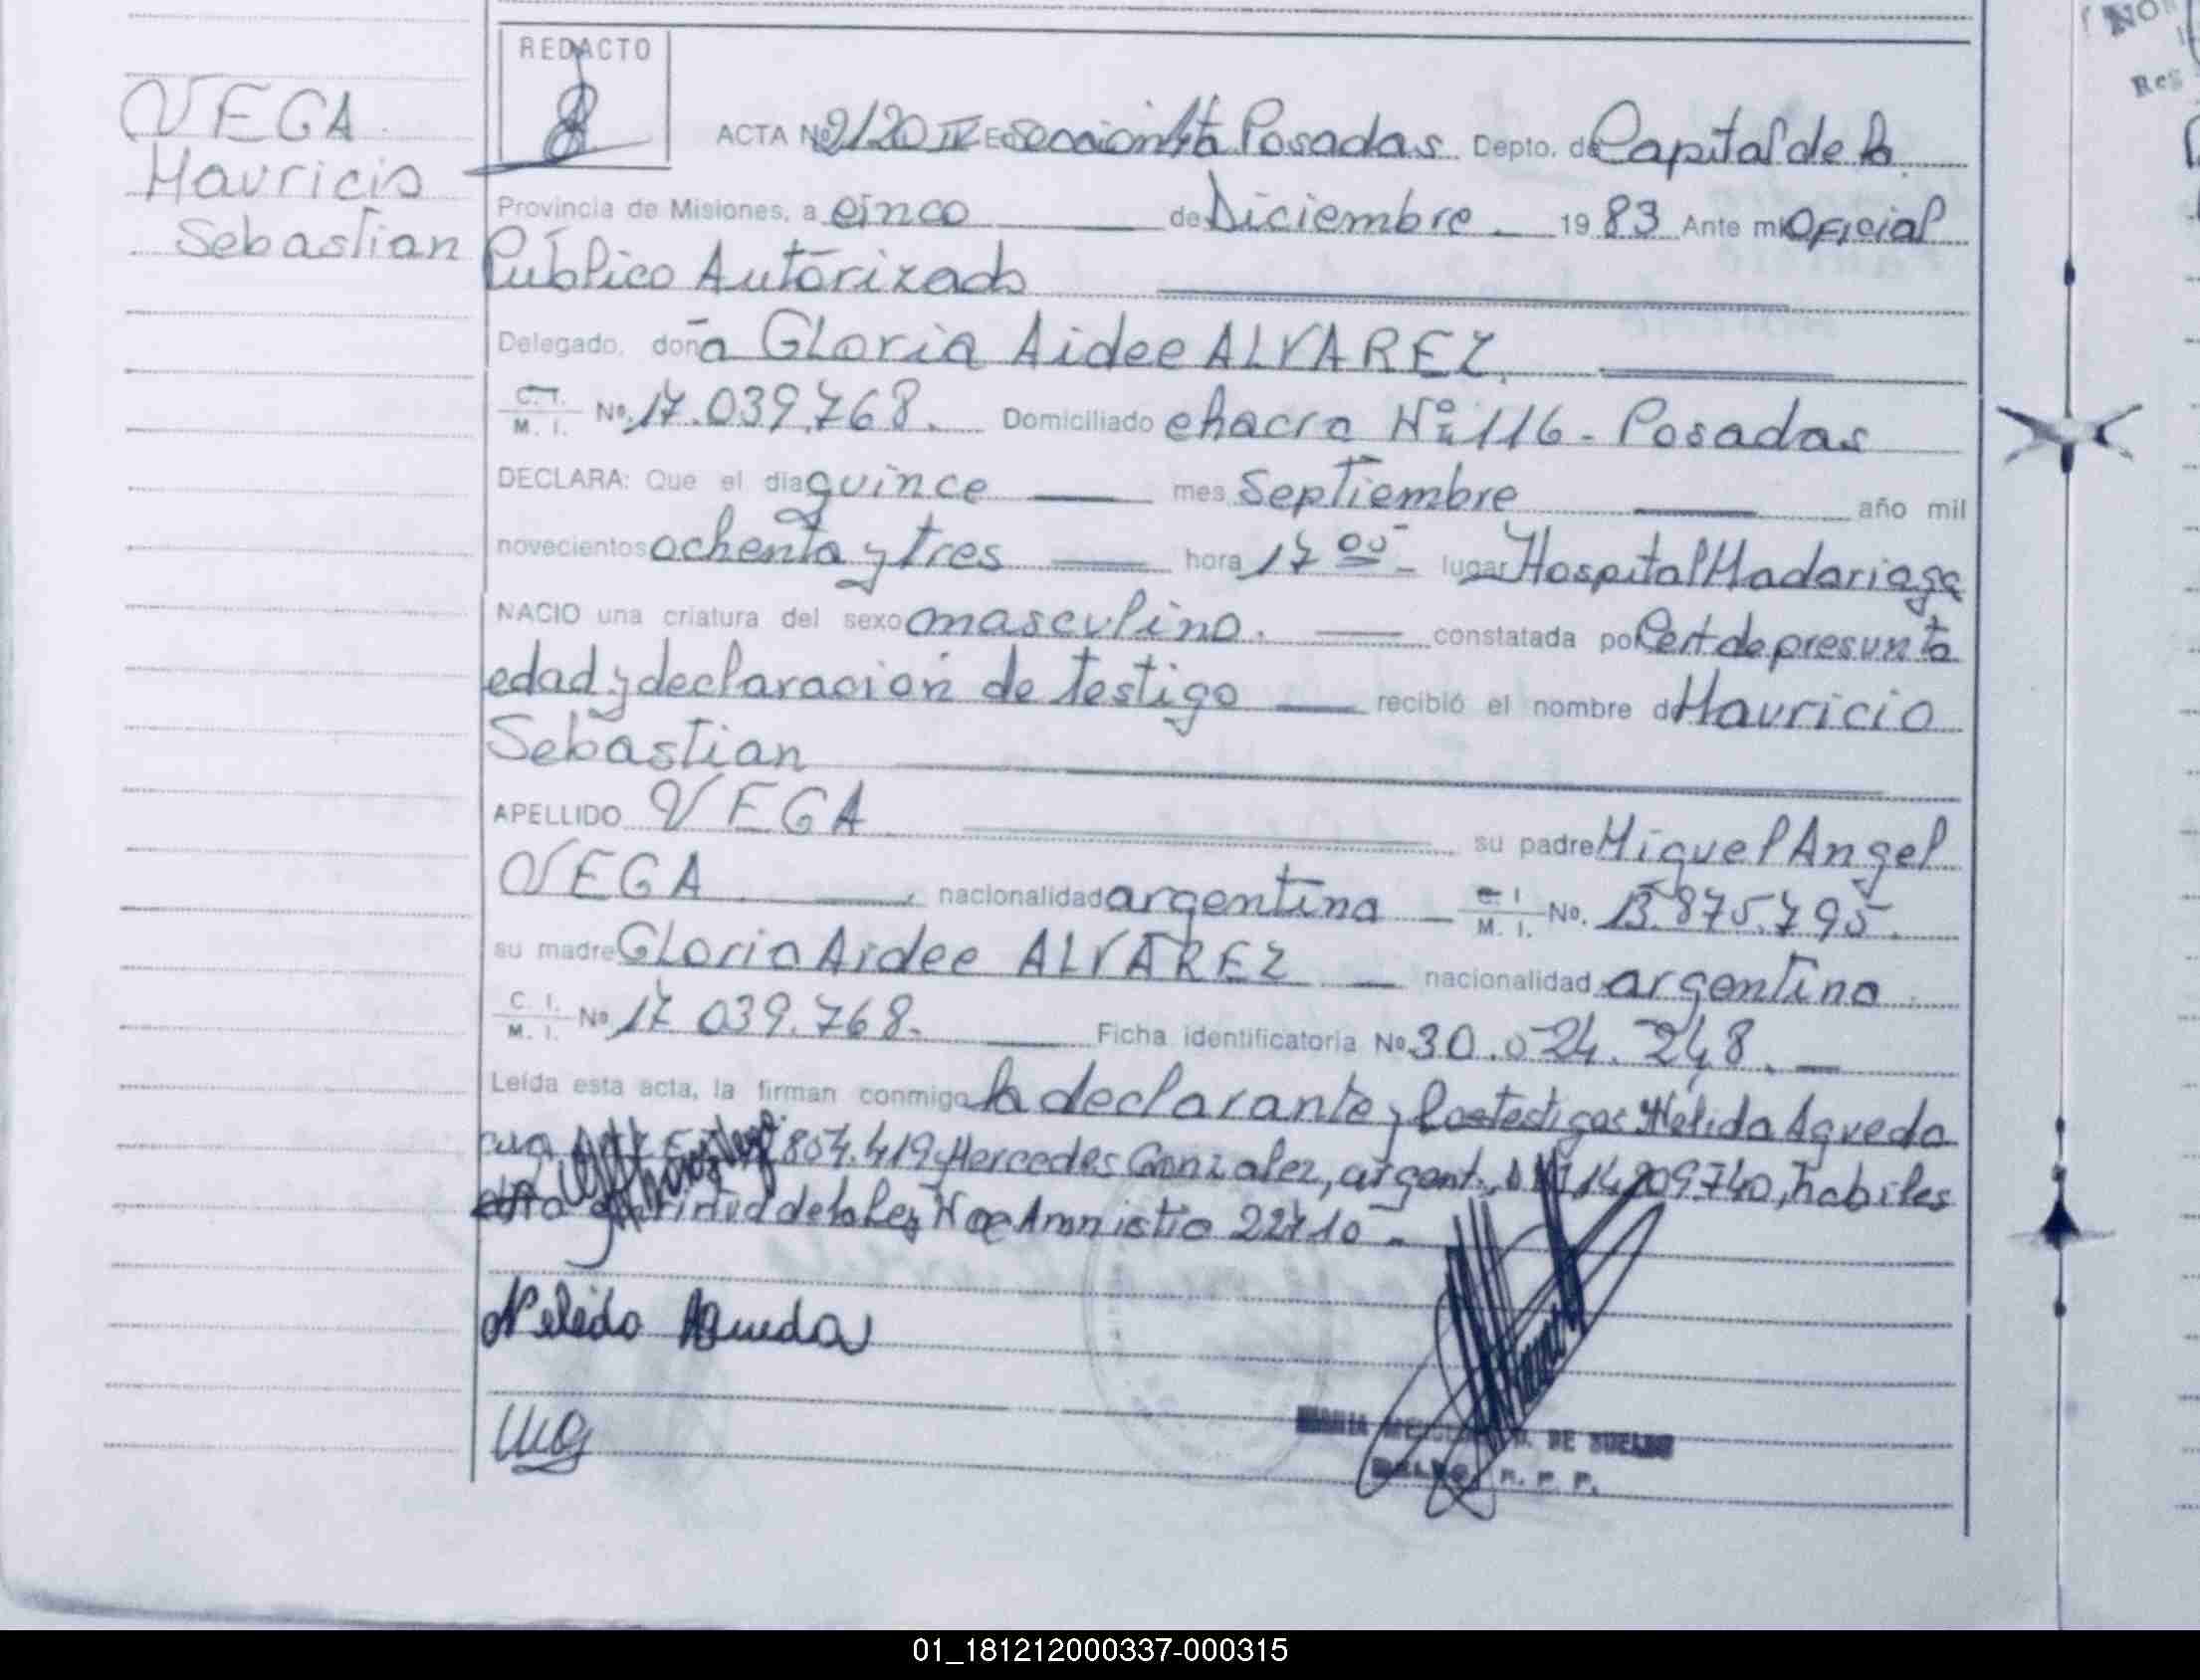 REDACTO
VEGA
Mauricio
Sebastian
ACTA Nº 2120 IV E Seccion 4ta Posadas Depto. de Capital de la
Provincia de Misiones, a cinco de Diciembre 1983 Ante mi Oficial
Público Autorizado
Delegado, doña Gloria Aidee ALVAREZ.
C.I. M. I. Nº. 17.039.768. Domiciliado chacra Nº 116 - Posadas
DECLARA: Que el día quince mes Septiembre año mil
novecientos ochenta y tres hora 17 00 lugar Hospital Madariaga
NACIO una criatura del sexo masculino. constatada por Cert de presunta
edad y declaracion de testigo recibió el nombre de Mauricio
Sebastian
APELLIDO VEGA su padre Miguel Angel
VEGA nacionalidad argentina C. I. M. I. Nº. 13.875.795.
su madre Gloria Aidee ALVAREZ nacionalidad argentina
C. I. M. I. Nº 17.039.768. Ficha identificatoria Nº 30.024.248.
Leída esta acta, la firman conmigo la declarante y los testigos Nélida Agueda
804.419 y Mercedes Gonzalez, argent., 14.209.740, habiles
virtud de la Ley Nº de Amnistia 22410 -
Nelida Agueda
MG
DE SUELDO
R. P. P.
01_181212000337-000315